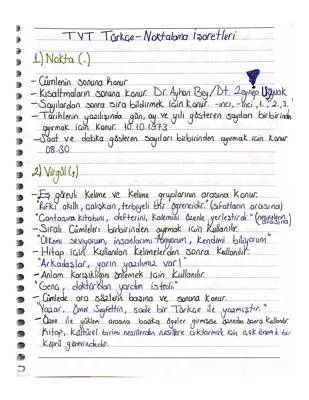 TYT Türkçe - Noktalama İşaretleri
1.) Nokta (.)
- Cümlenin sonuna konur
- Kısaltmaların sonuna konur. Dr. Ayhan Bey / Dt. Zeynep
- Sayılardan sonra sıra bildirmek için konur. -ıncı, -inci, 1., 2., 3.
- Tarihlerin yazılışında gün, ay ve yılı gösteren sayıları birbirinden
ayırmak için konur. 10.10.1973
- Saat ve dakika gösteren sayıları birbirinden ayırmak için konur
08.30
2) Virgül (,)
- Eş görevli kelime ve kelime gruplarının arasına konur.
"Rıfkı akıllı, çalışkan, terbiyeli bir öğrencidir." (sıfatların arasına)
"Çantasına kitabını, defterini, kalemini özenle yerleştirdi." (nesnelerin arasına)
- Sıralı Cümleleri birbirinden ayırmak için kullanılır.
"Ülkemi seviyorum, insanlarımı tanıyorum, kendimi biliyorum"
- Hitap için kullanılan kelimelerden sonra kullanılır.
"Arkadaşlar, yarın yazılımız var!"
- Anlam karışıklığını önlemek için kullanılır.
"Genç, doktordan yardım istedi."
- Cümlede ara sözlerin başına ve sonuna konur.
"Yazar, Ömer Seyfettin, sade bir Türkçe ile yazmıştır."
- Özne ile yüklem arasına başka öğeler girmişse özneden sonra kullanılır.
Kitap, kültürel birimi nesillerden nesillere aktarmak için çok önemli bir
köprü görevindedir.